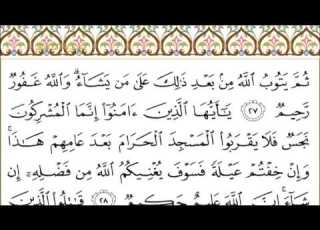 ثُمَّ يَتُوبُ ٱللَّهُ مِنۢ بَعْدِ ذَٰلِكَ عَلَىٰ مَن يَشَآءُ ۗ وَٱللَّهُ غَفُورٌ
رَّحِيمٌ ٢٧ يَـٰٓأَيُّهَا ٱلَّذِينَ ءَامَنُوٓا۟ إِنَّمَا ٱلْمُشْرِكُونَ
نَجَسٌ فَلَا يَقْرَبُوا۟ ٱلْمَسْجِدَ ٱلْحَرَامَ بَعْدَ عَامِهِمْ هَـٰذَا ۚ
وَإِنْ خِفْتُمْ عَيْلَةً فَسَوْفَ يُغْنِيكُمُ ٱللَّهُ مِن فَضْلِهِۦٓ إِن
شَآءَ ۚ إِنَّ ٱللَّهَ عَلِيمٌ حَكِيمٌ ٢٨ قَـٰتِلُوا۟ ٱلَّذِينَ